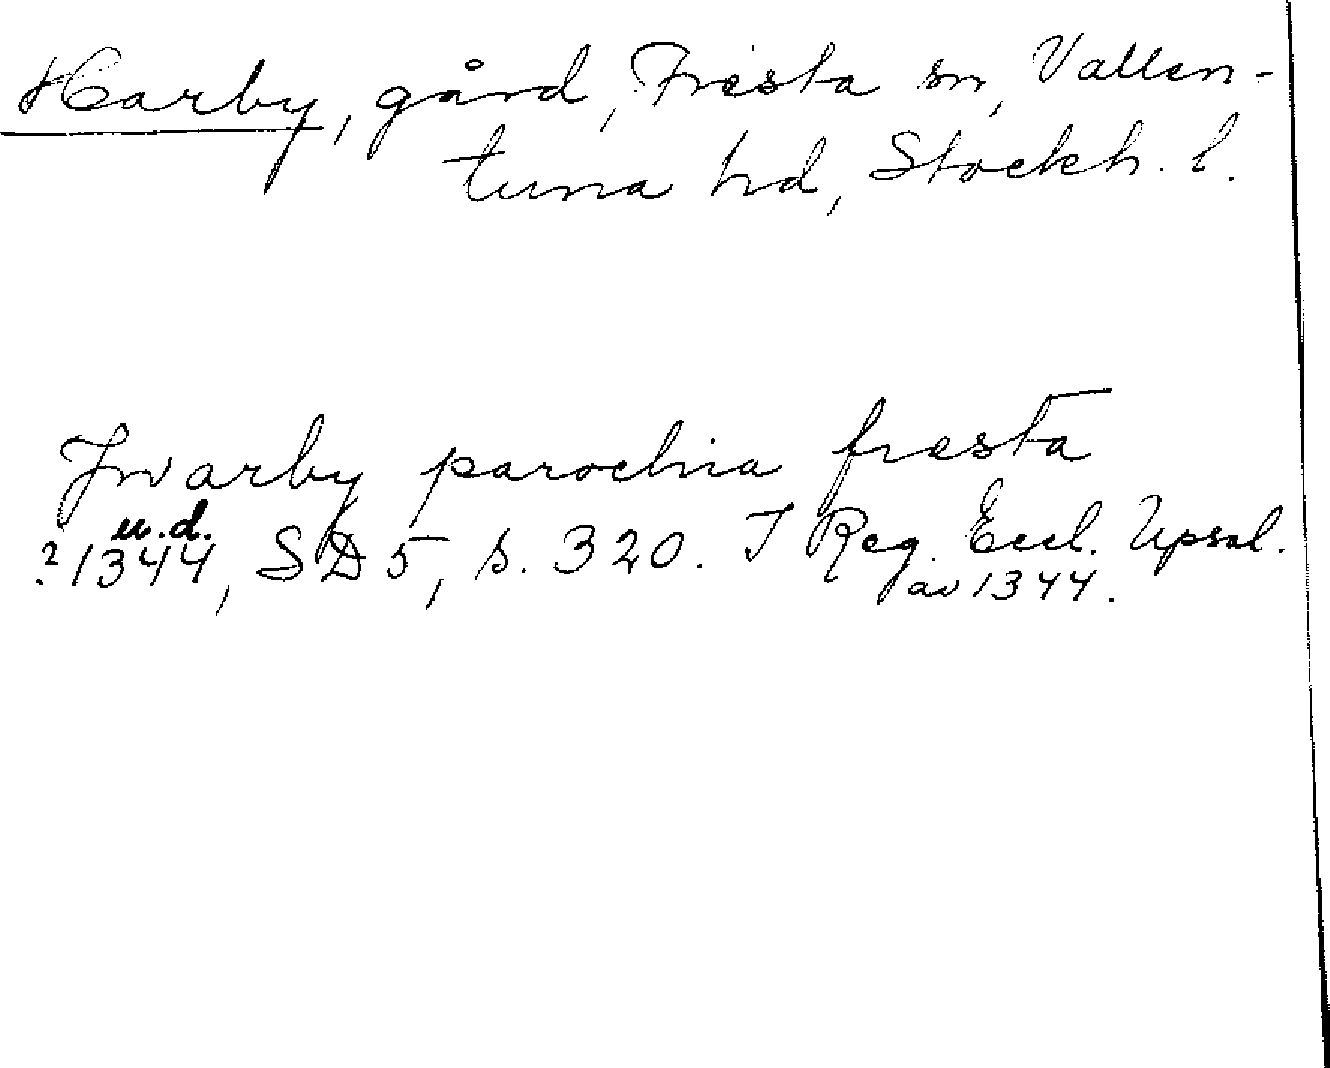 Harby, gård, Fresta sn, Vallen-
tuna hd, Stockh. l.
Jwarby parochia fresta
u.d.
?1344, SD 5, s. 320. I Reg. Eccl. Upsal.
av 1344.